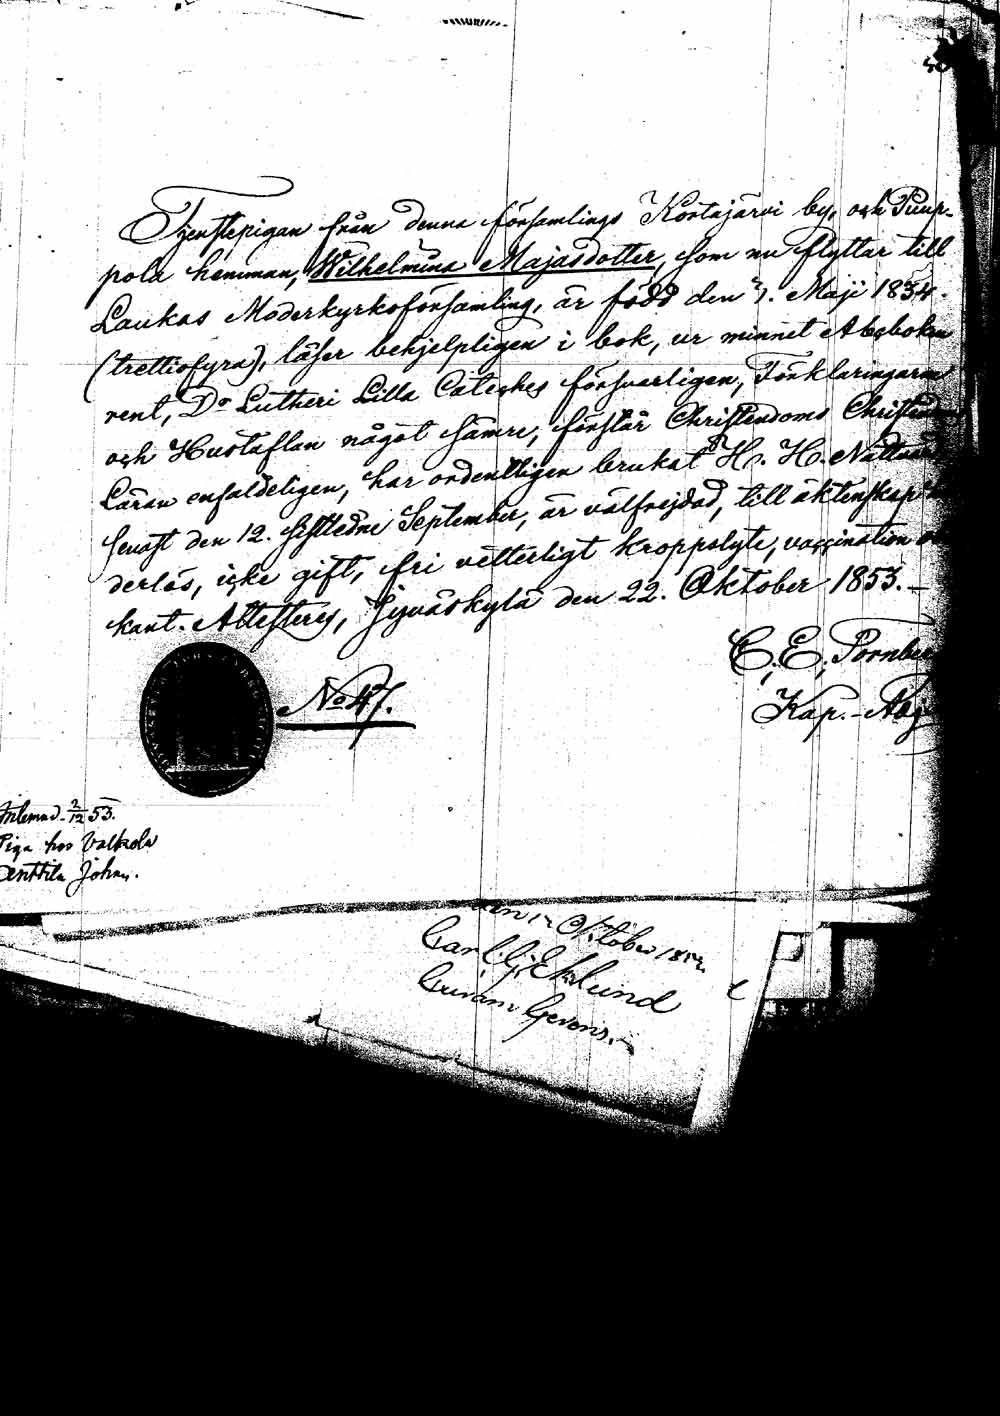 Tjenstepigan från denna församlings Kortajärvi by, och Puup-
pola hemman, Wilhelmina Majasdotter, som nu flyttar till
Laukas Moderkyrkoförsamling, är född den 7. Maji 1834.
(trettiofyra), läser behjelpligen i bok, ur minnet Abcboken
rent, Dr Lutheri Lilla Cateches försvarligen, Förklaringarne
och Hustaflan något sämre, förstår Christendoms
Läran enfaldeligen, har ordentligen brukat H. H. Nattvard
senast den 12. sistledne September, är välfrejdad, till äktenskap
derlös, icke gift, fri vetterligt kroppslyte, vaccination
kant. Attesteras, Jyväskylä den 22. Oktober 1853.—
C. E.
Kap.-
No 47.
Inlemnad 2/12 53.
Piga hos Valkola
Anttila Johan.
den 12 Oktober
Carl G. Eklund